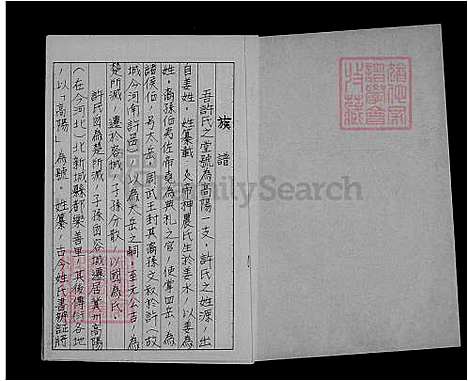 族譜
吾許氏之堂號為高陽一支，許氏之姓源，出
自姜姓。姓纂載：炎帝神農氏生於姜水，以姜為
姓，裔孫伯夷佐帝堯為典禮之官，使掌四岳，為
諸侯伯，号大岳，周武王封其裔孫文叔於許（故
城今河南許邑）以為大岳之嗣，至元公吉，為
楚所滅，遷於容城，子孫分散，以國為氏。
許氏因為楚所滅，子孫因容城遷居冀州高陽
（在今河北）北新城縣都樂善里，其後傳衍各地
，以「高陽」為號。姓纂，古今姓氏書辨証將
FamilySearch